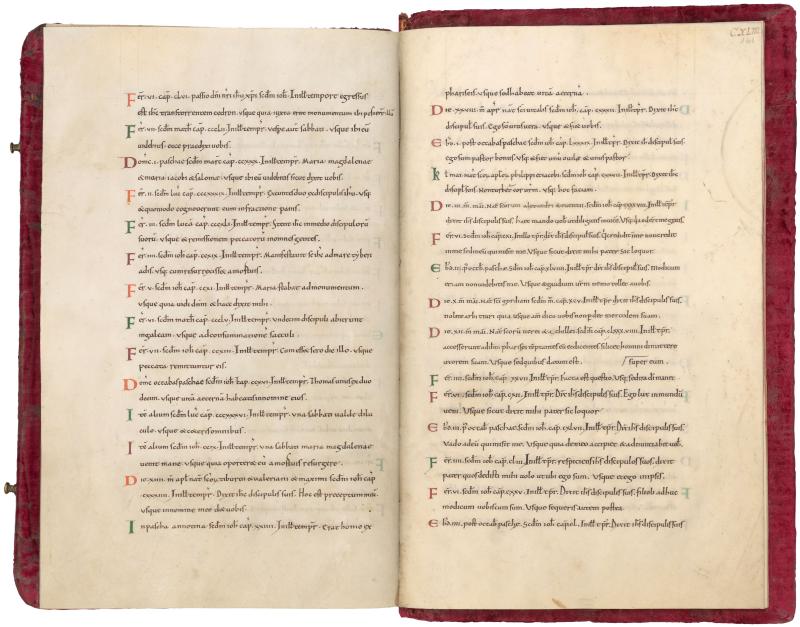 Fer. vi. cap. clvi. passio dni nri ihu xpi scdm ioh. In illo tempore egressus
est ihs trans torrentem cedron. usque quia iuxta erat monumentum
Fer. vii. scdm math. cap. In illo tempr. Vespe aut sabbati. usque ibi eu
uidebitis. ecce praedixi uobis.
Domc. i. paschae scdm marc. cap. ccxxxi. In illo tempr. Maria magdalenae
& maria iacobi & salome. usque ibi eu uidebitis sicut dixit uobis.
Fer. ii. scdm luca cap. In illo tempr. Exeuntes duo ex discipulis ihu. usq
& quomodo cognouerunt eum in fractione panis.
Fer. iii. scdm luca cap. In illo tempr. Stetit ihs in medio discipuloru
suoru. usque & remissionem peccatoru in omnes gentes.
Fer. iiii. scdm ioh. cap. In illo tempr. Manifestauit se ihs ad mare tyberi
adis. usq cum resurrexisset a mortuis.
Fer. v. scdm ioh. cap. ccxi. In illo tempr. Maria stabat ad monumentum.
usque quia uidi dnm & haec dixit mihi.
Fer. vi. scdm math. cap. ccclv. In illo tempr. Undecim discipuli abierunt
in galileam. usque ad consummatione saeculi.
Fer. vii. scdm ioh. cap. In illo tempr. Cum esset sero die illo. usque
peccata remittuntur eis.
Domc octabas paschae scdm ioh. cap. ccxvi. In illo tempr. Thomas unus ex duo
decim. usque uita aeterna habeatis in nomine eius.
Ite alium scdm luc. cap. In illo tempr. Una sabbati ualde dilu
culo. usque & ceteris omnibus.
Ite alium scdm ioh. ccix. In illo tempr. Una sabbati maria magdalenae
uenit mane. usque quia oporteret eu a mortuis resurgere.
Die xiiii. m apl nat scoru tiburtii & ualeriani & maximi scdm ioh. cap
cxxxiiii. In illo tempr. Dixit ihs discipulis suis. Hoc est preceptum meu.
usque in nomine meo d& uobis.
In pascha annotina scdm ioh. cap. xxiiii. In illo tempr. Erat homo ex
CXLIII
pharis&is. usque sed habeat uita aeterna.
Die xxviii. m apr. nat sci uitalis scdm ioh. cap. In illo tempr. Dixit ihs
discipul. suis. Ego su uitis uera. usque & fi& uobis.
Ebd. i. post octabas paschae scdm ioh. cap. In illo tempr. Dixit ihs discipul. suis.
ego sum pastor bonus. usq & fi& unu ouile & unus pastor.
Kl mai. nat scor. aplor. philippi & iacobi. scdm ioh. cap. In illo tempr. Dixit ihs
discipl. suis. Non turb&ur cor urm. usq hoc faciam.
Die iii. m. mai. Nat scorum alexandri & euentii. scdm ioh. cap. In illo tempr.
dixit ihs discipulis suis. haec mando uobis ut diligatis inuice.
Fer. vi. scdm ioh. cap. cxi. In illo tempr. dix ihs discipulis suis. Qui credit in me non credit
in me sed in eu qui misit me. Usque sicut dixit mihi pater sic loquor.
Ebd. ii. p. octb. paschae. scdm ioh. cap. In illo tempr. dix ihs discipulis suis. Modicum
et iam non uidebitis me. Usque & gaudium urm nemo toll& a uobis.
Die x. m. mai. Nat sci gordiani scdm m. cap. xcv. In illo tempr. dix ihs discipulis suis.
nolite arbitrari quia. usque am dico uobis non perd& mercedem suam.
Die xii. m. mai. Nat scoru nerei & achillei scdm m. cap. In illo tempr.
accesserunt ad ihm pharisei teptantes eu & dicentes si lic& homini dimittere
uxorem suam. Usque sed quibus datum est. super eum.
Fer. iiii. scdm ioh. cap. xxvi. In illo tempr. Facta est questio. Usq sed ira di man&
Fer. vi. scdm ioh. cap. cxi. In illo tempr. Dix ihs discipulis suis. Ego lux in mundu
ueni. Usque sicut dixit mihi pater sic loquor
Ebd. iii. p. octab paschae scdm ioh. cap. In illo tempr. Dix ihs discipulis suis.
Vado ad eu qui misit me. Usque quia de meo accipi& & adnuntiabit uob.
Fer. iiii. scdm ioh. cap. In illo tempr. respiciens ihs discipulos suos. dixit
pater quos dedisti mihi uolo ut ubi ego sum. Usque & ego in ipsis.
Fer. vi. scdm ioh. cap. In illo tempr. Dixit ihs discipulis suis. filioli adhuc
modicum uobiscum sum. Usque sequeris autem postea.
Ebd. iiii. post octab paschae. Scdm ioh. cap. In illo tempr. Dixit ihs discipulis suis